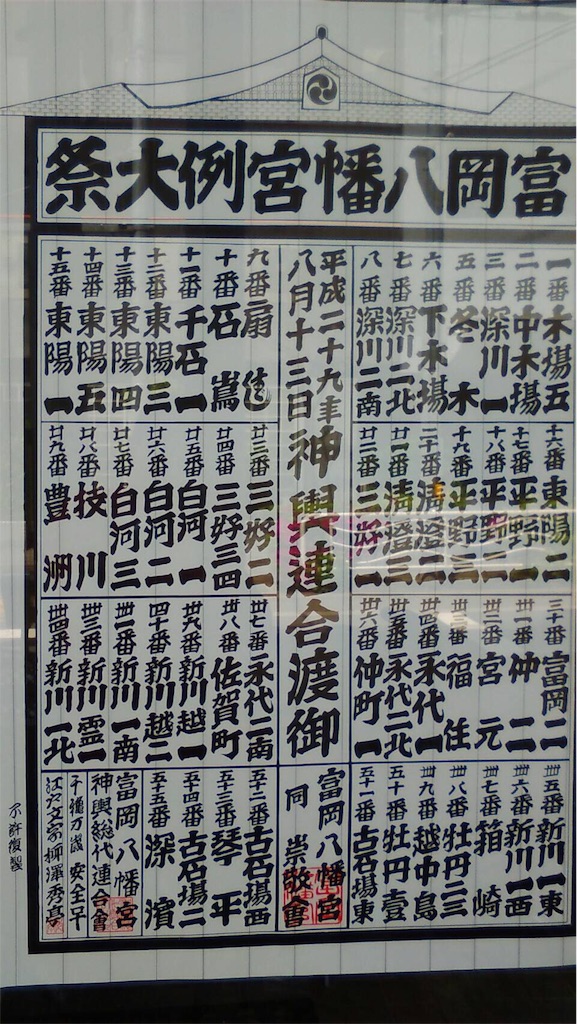 富岡八幡宮例大祭
一番 木場五
二番 中木場
三番 深川一
五番 冬木
六番 下木場
七番 深川二北
八番 深川二南
平成二十九年
八月十三日
神輿連合渡御
九番 扇
十番 石嶌
十一番 千石一
十二番 東陽三
十三番 東陽四
十四番 東陽五
十五番 東陽一
十六番 東陽二
十七番 平野一
十八番 平野二
十九番 平野三
二十番 清澄二
廿一番 清澄三
廿二番 三好一
廿三番 三好二
廿四番 三好三四
廿五番 白河一
廿六番 白河二
廿七番 白河三
廿八番 枝川
廿九番 豊洲
三十番 富岡二
卅一番 仲二
卅二番 宮元
卅三番 福住
卅四番 永代一
卅五番 永代二北
卅六番 仲町一
卅七番 永代二南
卅八番 佐賀町
卅九番 新川越一
四十番 新川越二
卌一番 新川一南
卌三番 新川霊二
卌四番 新川一北
卌五番 新川一東
卌六番 新川一西
卌七番 箱崎
卌八番 牡丹二三
卌九番 越中島
五十番 牡丹壹
五十一番 古石場東
富岡八幡宮
同 崇敬會
五十二番 古石場西
五十三番 琴平
五十四番 古石場二
五十五番 深濱
富岡八幡宮
神輿総代連合會
千穐万歳 安全早
江戸文字 柳澤秀亭
不許複製